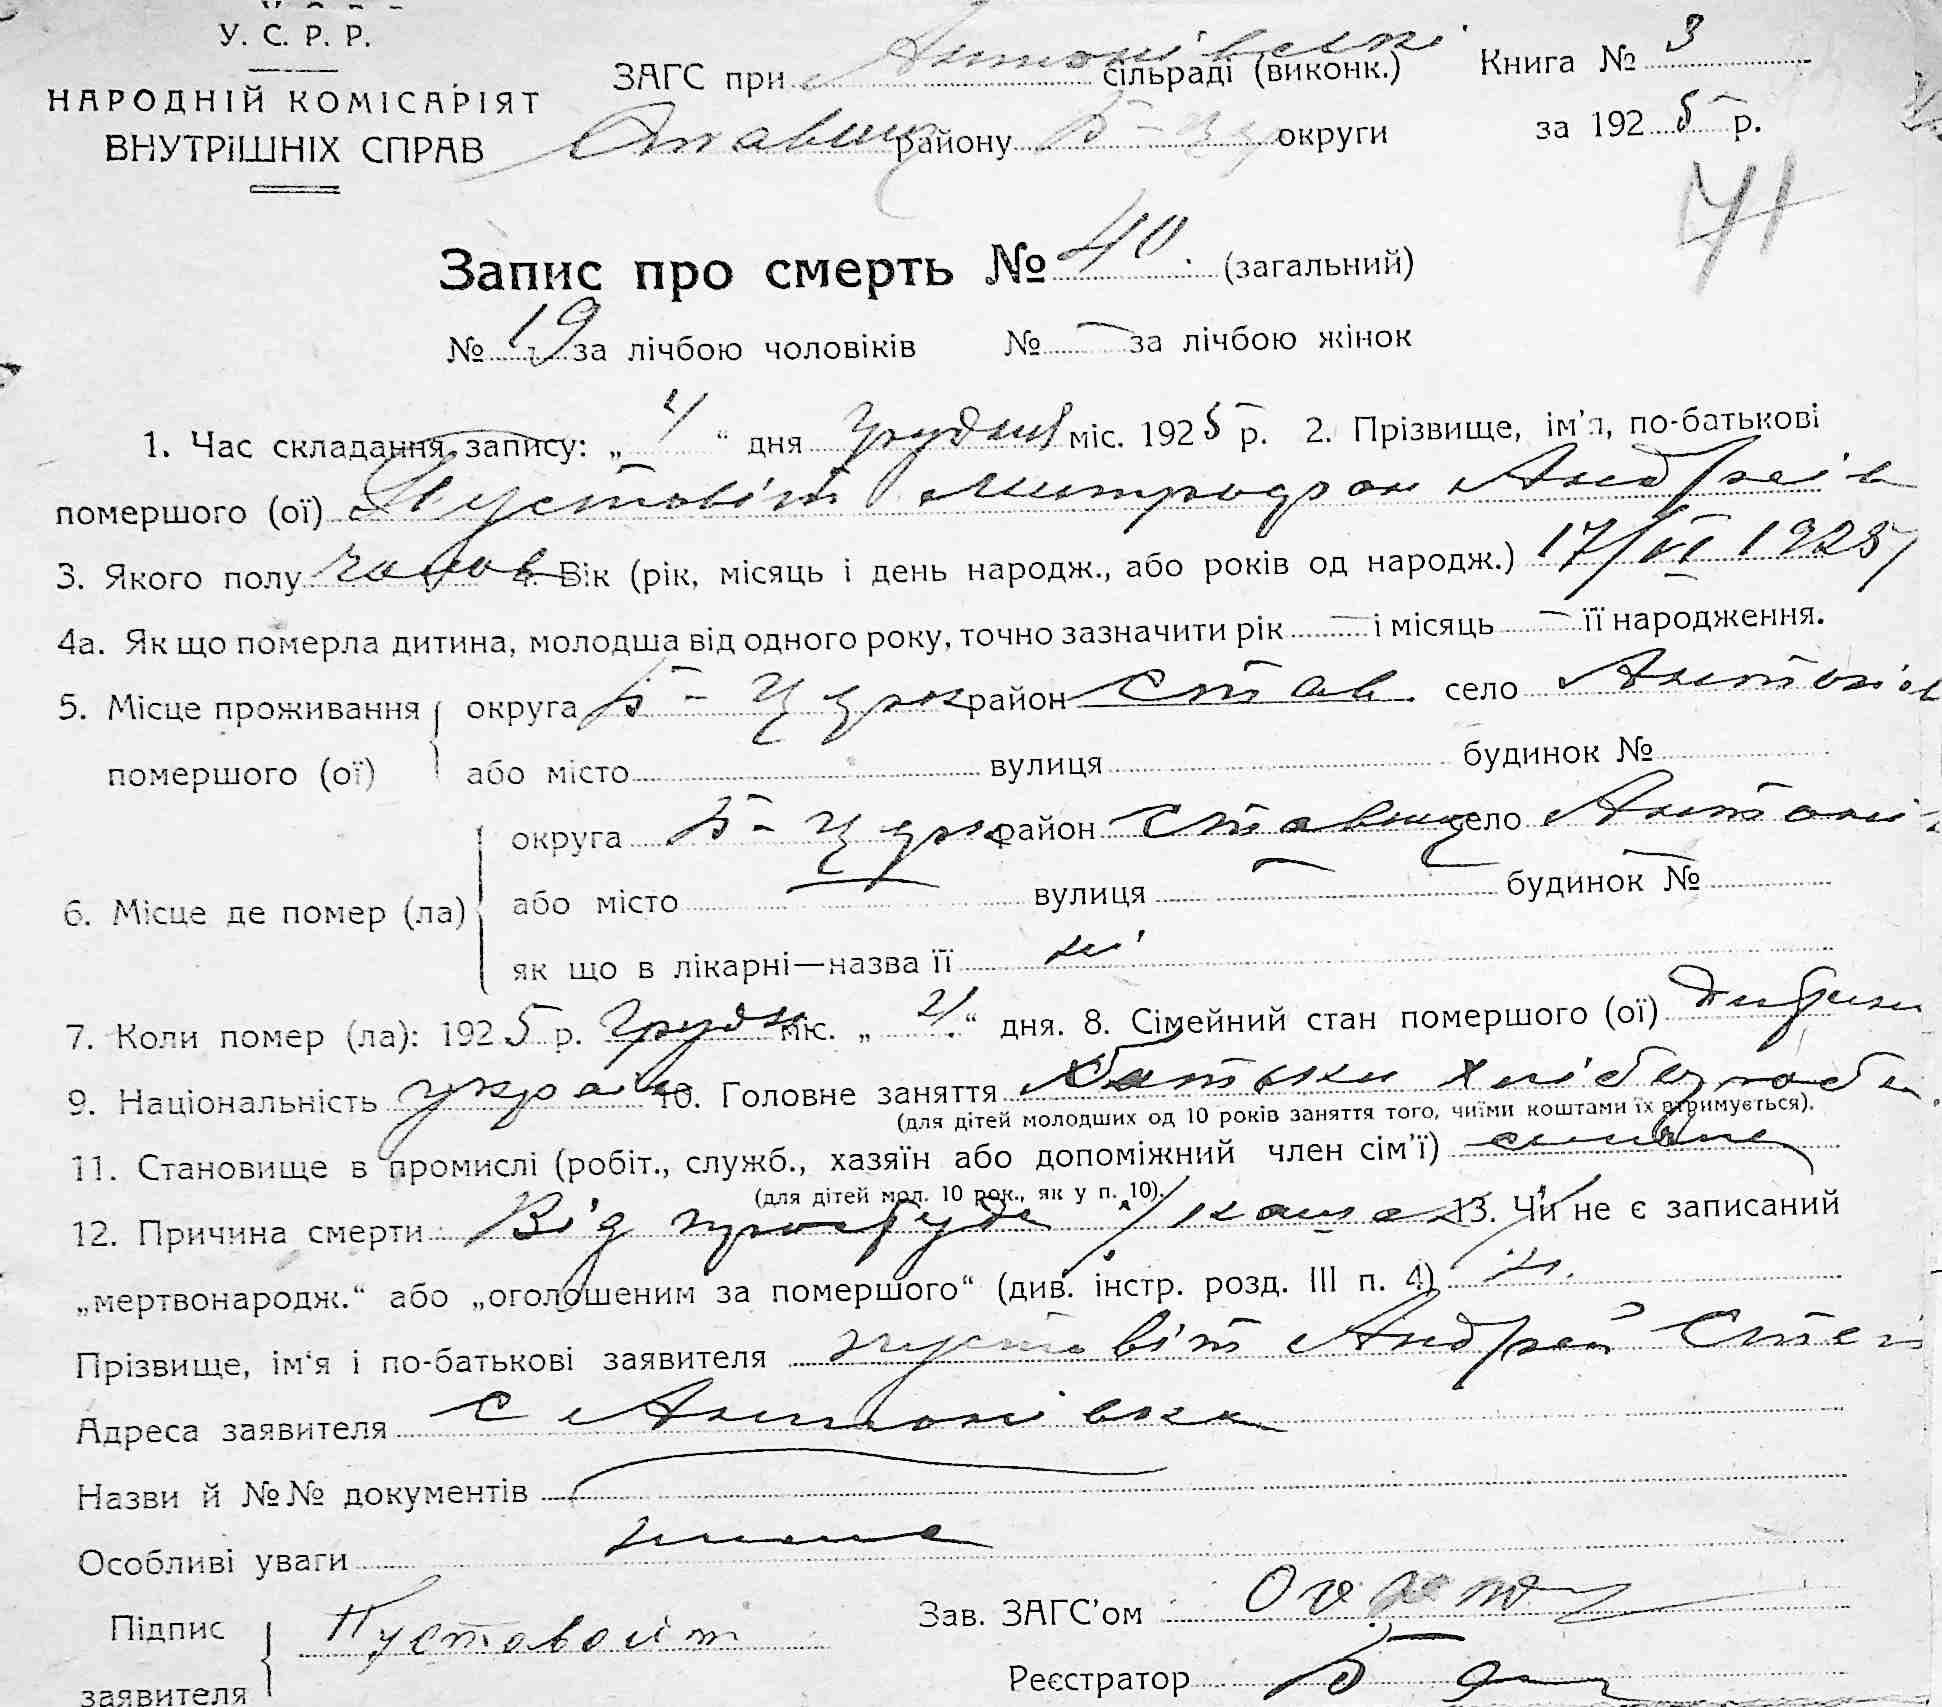 У. С. Р. Р.
НАРОДНІЙ КОМІСАРІЯТ
ВНУТРІШНІХ СПРАВ
ЗАГС при Антонівські сільраді (виконк.) Книга № 3
Ставищ району Б-Цер округи за 1925 р.
71
Запис про смерть № 40. (загальний)
№ 19 за лічбою чоловіків № — за лічбою жінок
1. Час складання запису: „ “ дня Грудня міс. 1925 р. 2. Прізвище, ім'я, по-батькові
помершого (ої) Пустовіт Митрофан Андреів
3. Якого полу чолов 4. Вік (рік, місяць і день народж., або років од народж.) 17/VI 1925
4а. Як що померла дитина, молодша від одного року, точно зазначити рік — і місяць — її народження.
5. Місце проживання округа Б-Церк район Став. село Антонів
помершого (ої) або місто вулиця будинок №
округа Б-Церк район Ставищ село Антонів
6. Місце де помер (ла) або місто — вулиця — будинок № —
як що в лікарні—назва її ні
7. Коли помер (ла): 1925 р. Грудня міс. „ “ дня. 8. Сімейний стан помершого (ої) дитина
9. Національність україн 10. Головне заняття батьки хлібороби
(для дітей молодших од 10 років заняття того, чиїми коштами їх втримується).
11. Становище в промислі (робіт., служб., хазяїн або допоміжний член сім'ї)
(для дітей мол. 10 рок., як у п. 10).
12. Причина смерти Від простуди /кашль/ 13. Чи не є записаний
„мертвонародж.“ або „оголошеним за помершого“ (див. інстр. розд. III п. 4) ні.
Прізвище, ім'я і по-батькові заявителя Пустовіт Андрей
Адреса заявителя с Антонівка
Назви й №№ документів
Особливі уваги нима
Підпис Пустовоит Зав. ЗАГС'ом
заявителя Реєстратор